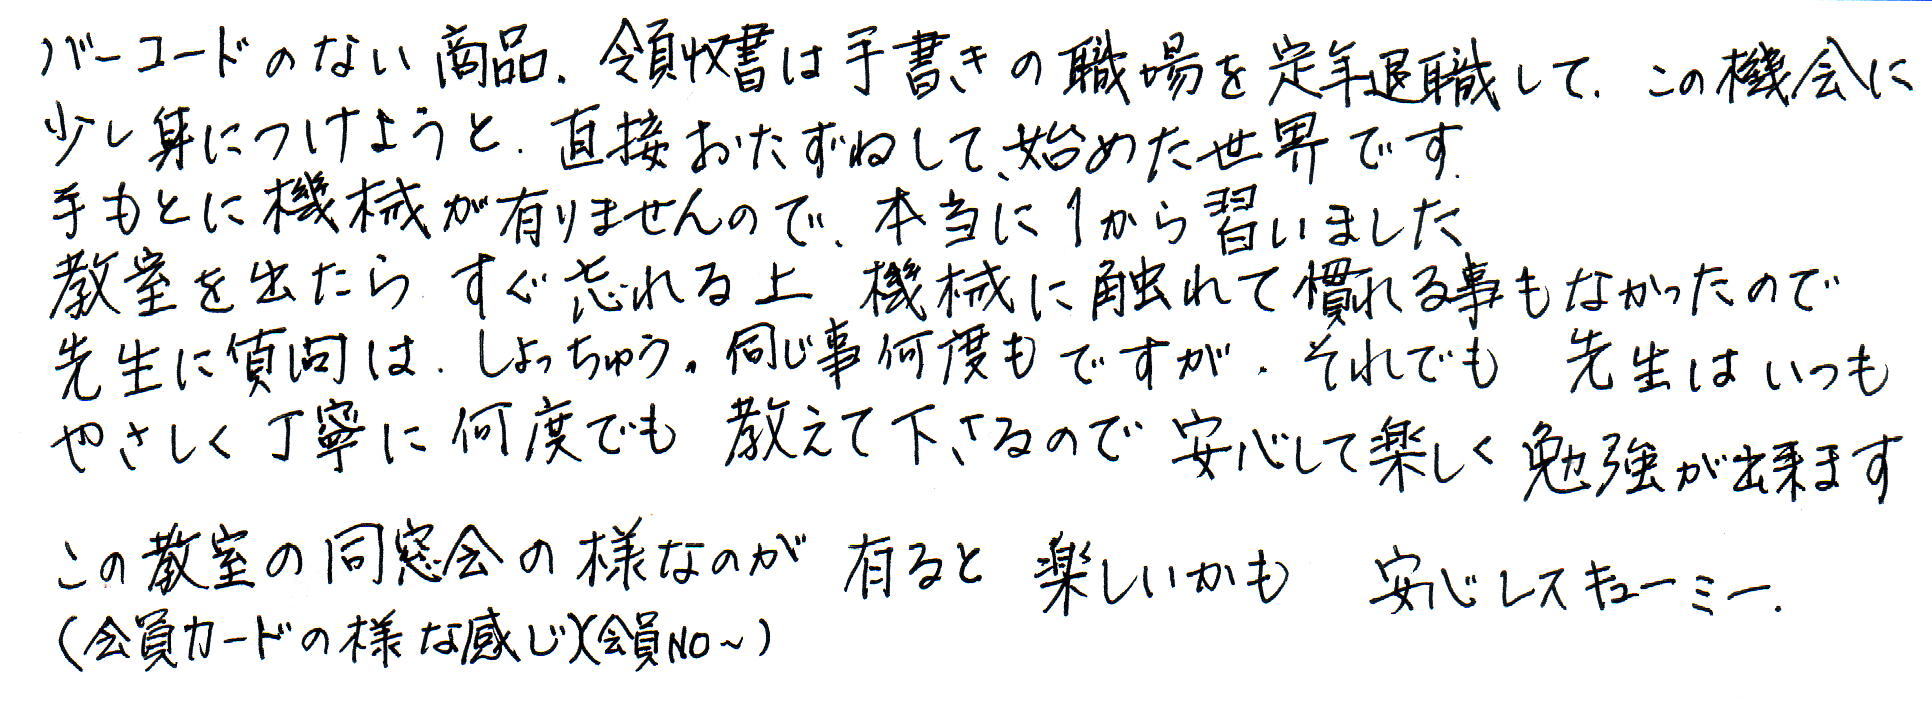 バーコードのない商品、領収書は手書きの職場を定年退職して、この機会に
少し身につけようと、直接おたずねして、始めた世界です。
手もとに機械が有りませんので、本当に1から習いました
教室を出たら すぐ忘れる上 機械に触れて慣れる事もなかったので
先生に質問は、しょっちゅう。同じ事何度もですが、それでも 先生はいつも
やさしく丁寧に何度でも 教えて下さるので 安心して楽しく勉強が出来ます
この教室の同窓会の様なのが 有ると 楽しいかも 安心レスキューミー.
(会員カードの様な感じ)(会員NO~)